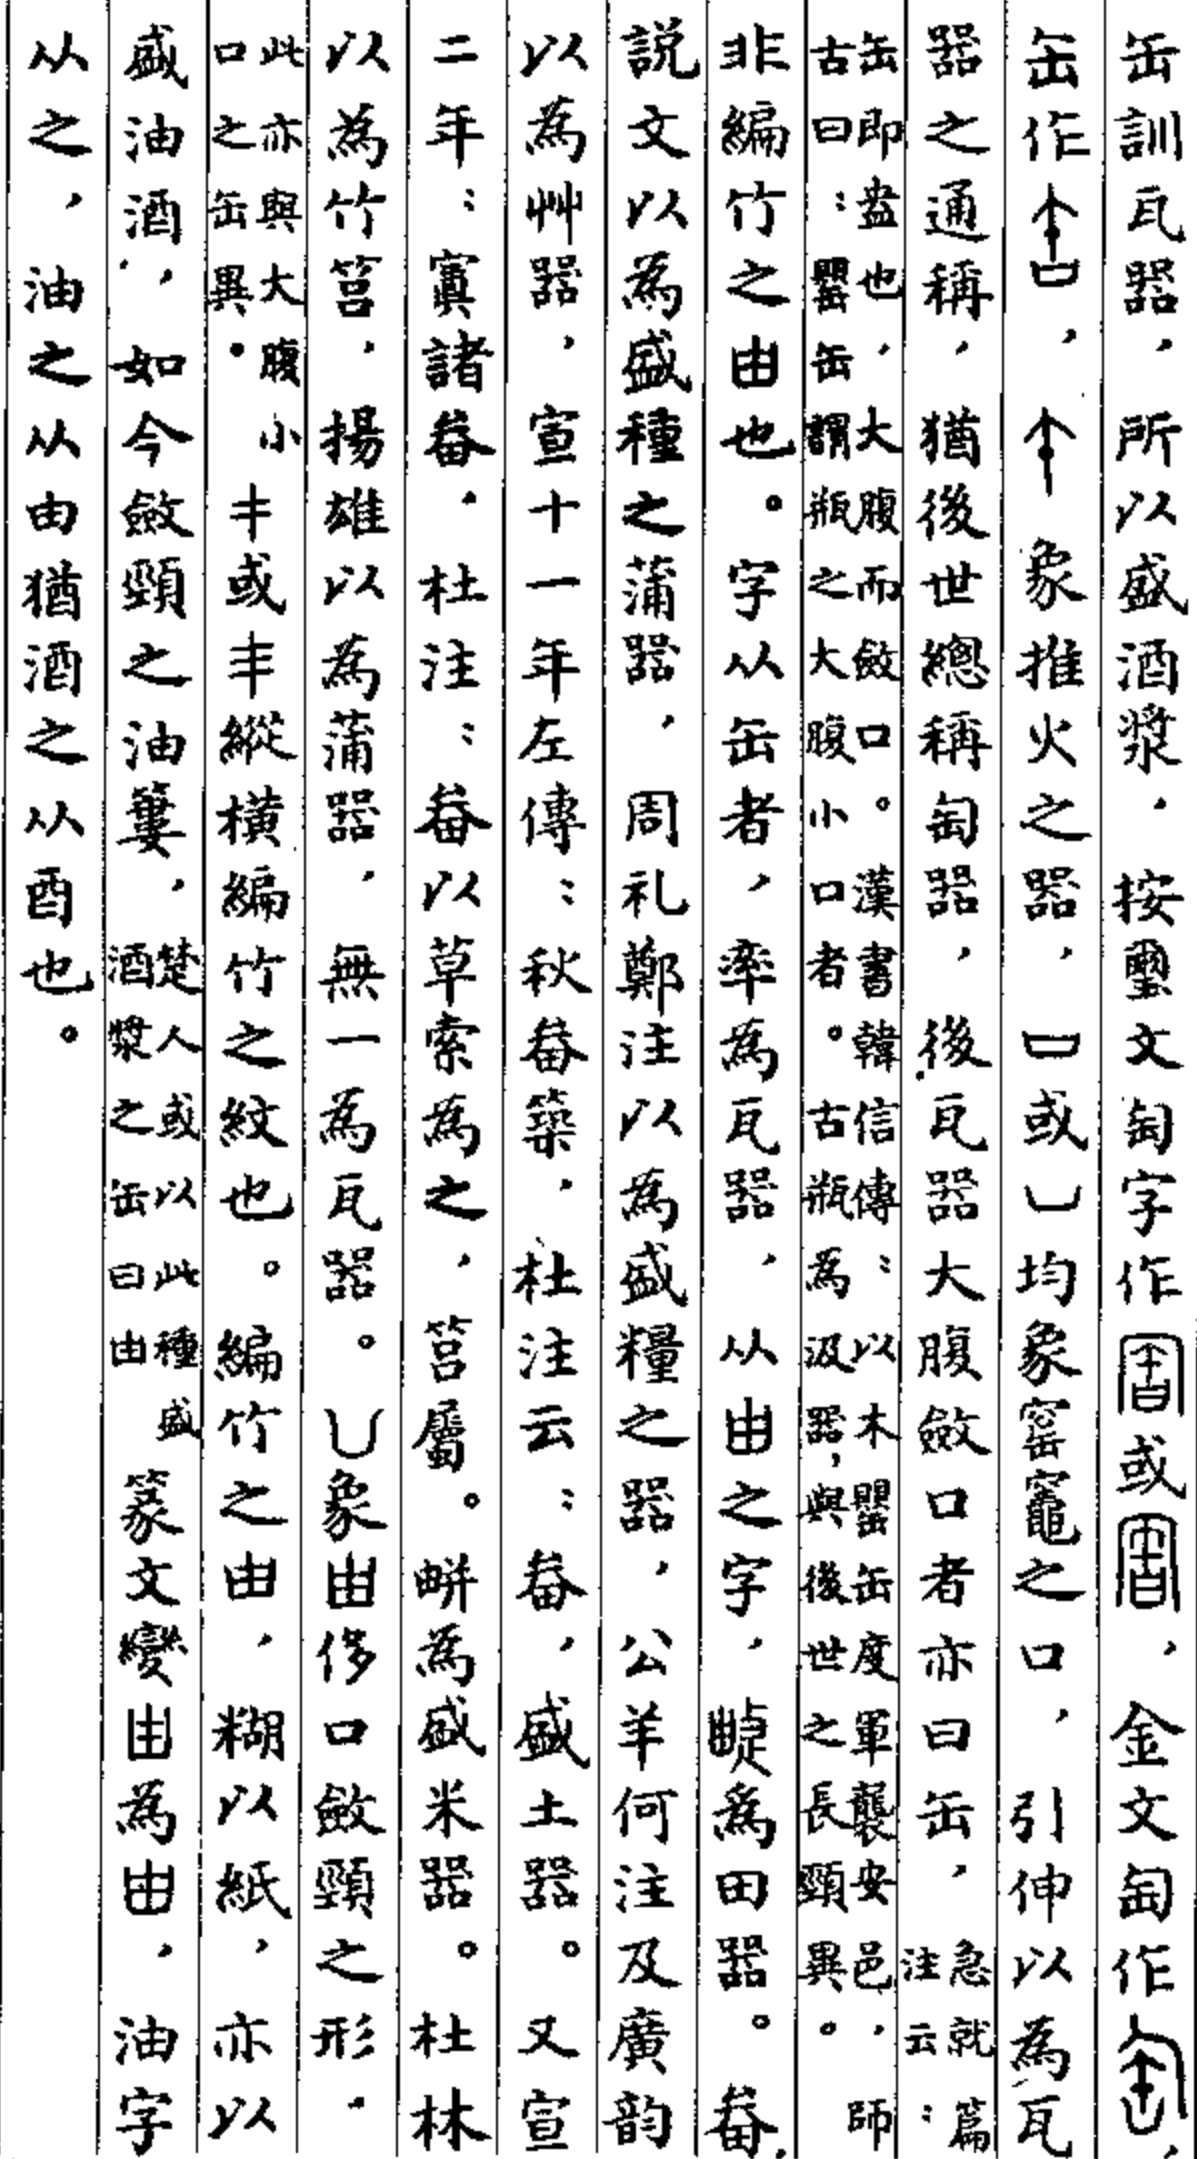 缶訓瓦器，所以盛酒漿．按璽文匋字作或，金文匋作，
缶作，象推火之器，或凵均象窑竈之口，引伸以為瓦
器之通稱，猶後世總稱匋器，後瓦器大腹斂口者亦曰缶，急就篇注云：師
古曰：缶即盎也，大腹而斂口。漢書韓信傳：以木罌缶度軍襲安邑，師古曰：罌缶謂瓶之大腹小口者。古瓶為汲器，與後世之長頸異。
非編竹之甾也。字从缶者，率為瓦器，从甾之字，疌為田器。畚，
説文以為盛種之蒲器，周礼鄭注以為盛糧之器，公羊何注及廣韵
以為艸器，宣十一年左傳：秋畚築，杜注云：畚，盛土器。又宣
二年：寘諸畚．杜注：畚以草索為之，筥屬。畊為盛米器。杜林
以為竹筥，揚雄以為蒲器，無一為瓦器。凵象甾侈口斂頸之形．
此亦與大腹小口之缶異．丰或丰縱横編竹之紋也。編竹之甾，糊以紙，亦以
盛油酒，如今斂頸之油簍，楚人或以此種盛酒漿之缶曰由篆文變由為甾，油字
从之，油之从由猶酒之从酉也。